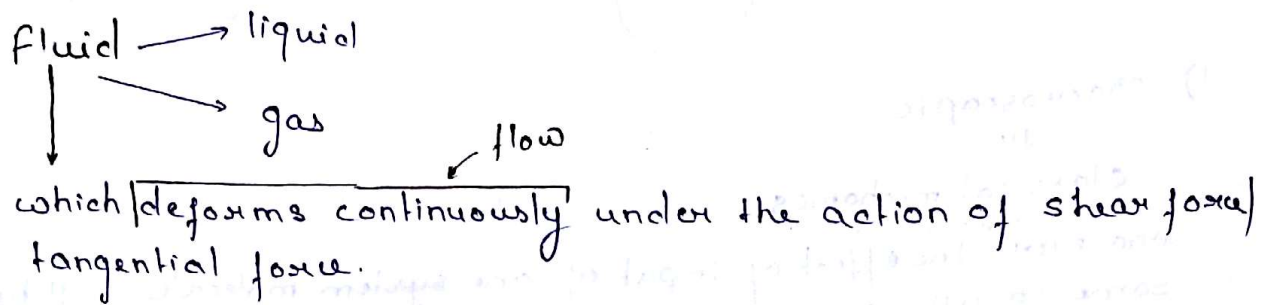 fluid → liquid
gas
flow
which deforms continuously under the action of shear force/
tangential force.